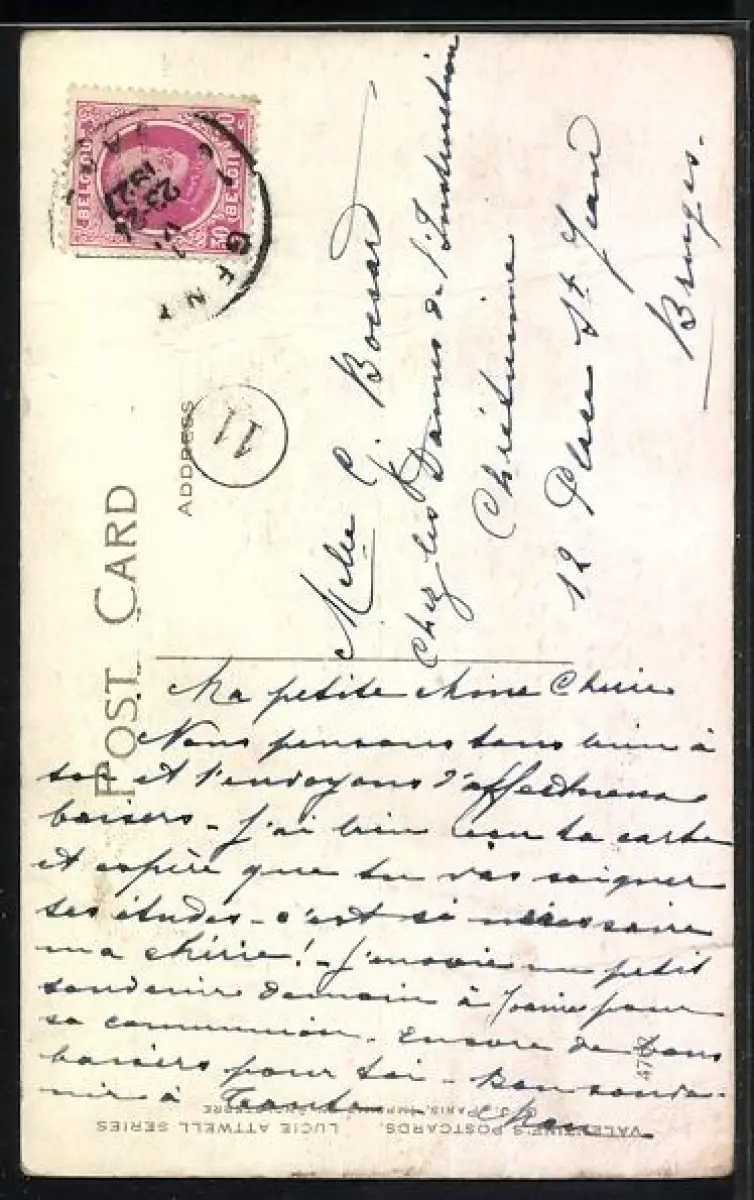 BELGIQUE BELGIË
30c
GENT
POST CARD
ADDRESS
11
Melle G. Bossard
Chez les Dames de l'Instruction
Chrétienne
12 Place St Jean
Bruges.
Ma petite Mine Chérie
Nous pensons tous bien à
toi et t'envoyons d'affectueux
baisers - J'ai bien reçu ta carte
et espère que tu vas soigner
tes études - c'est si nécessaire
ma chérie! - J'envoie un petit
souvenir demain à pour
sa communion. Encore de bons
baisers pour toi - Bon souve-
nir à Tante
VALENTINE'S POSTCARDS. LUCIE ATTWELL SERIES